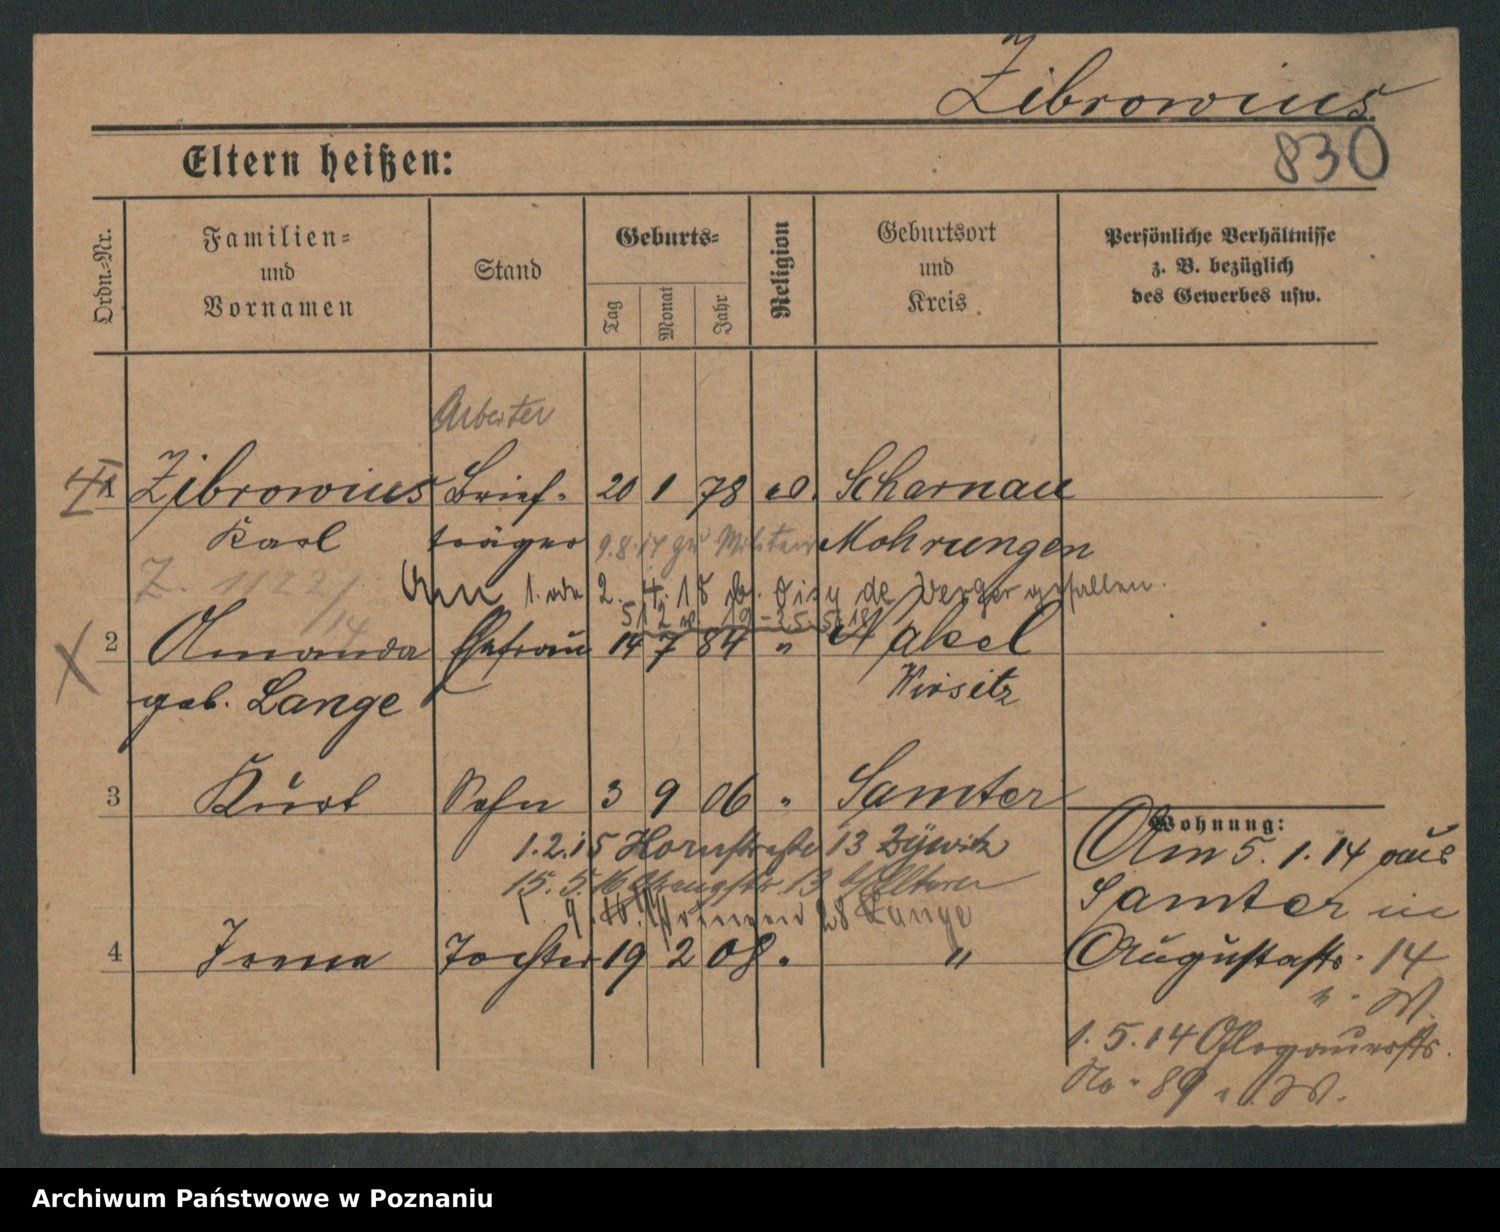 Zibrowius.
830
Eltern heißen:
Ordn.-Nr.
Familien-
und
Vornamen
Stand
Geburts-
Tag
Monat
Jahr
Religion
Geburtsort
und
Kreis
Persönliche Verhältnisse
z. B. bezüglich
des Gewerbes usw.
Arbeiter
1 Zibrowius Brief- 20 1 78 ev. Scharnau
Karl träger 9.8.14 zu Militär Mohrungen
Z. 1122/14
Am 1. oder 2. 4. 18 b. de Verger gefallen.
512 19 - 25.5.18
2 Amanda Ehefrau 14 7 84 " Nakel
geb. Lange Wirsitz
3 Kurt Sohn 3 9 06 " Samter
Wohnung:
Am 5. 1. 14 aus
Samter in
Augustastr. 14
b. W.
1. 5. 14 Glogauerstr.
No. 89 b. W.
1.2.15 Hornstraße 13
15. 5. 16 13
28 Lange
4 Irma Tochter 19 2 08 " "
Archiwum Państwowe w Poznaniu